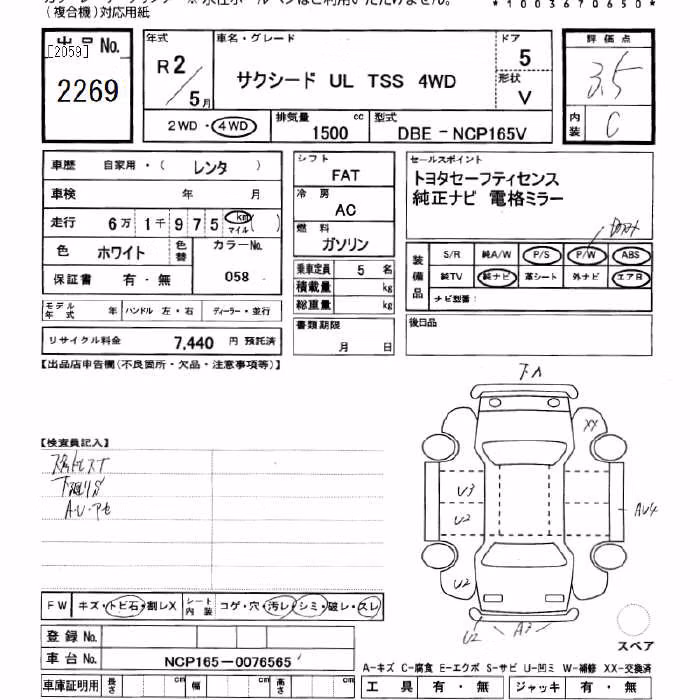 (複合機)対応用紙
*1003670650*
出品 No.
[2059]
2269
年式
R2/5月
車名・グレード
サクシード UL TSS 4WD
ドア
5
形状
V
評価点
3.5
内装
C
2WD・4WD
排気量 cc
1500
型式
DBE-NCP165V
車歴 自家用・( レンタ )
車検 年 月
走行 6万 1千 9 7 5 km マイル ( )
色 ホワイト 色替 カラーNo. 058
保証書 有・無
モデル年式 年 ハンドル 左・右 ディーラー・並行
リサイクル料金 7,440 円 預託済
シフト
FAT
冷房
AC
燃料
ガソリン
乗車定員 5 名
積載量 kg
総重量 kg
書類期限
月 日
セールスポイント
トヨタセーフティセンス
純正ナビ 電格ミラー
装備品
S/R 純A/W P/S P/W ABS
純TV 純ナビ 革シート 外ナビ エアB
ナビ型番:
後日品
【出品店申告欄(不良箇所・欠品・注意事項等)】
【検査員記入】
下廻りS
A・U・アセ
下A
XX
U3
U2
AU4
U2
U2
A3
スペア
FW キズ・トビ石・割レX シート内装 コゲ・穴・汚レ・シミ・破レ・スレ
登録 No.
車台 No. NCP165-0076565
A-キズ C-腐食 E-エクボ S-サビ U-凹ミ W-補修 XX-交換済
車庫証明用 長さ cm 幅 cm 高さ cm
工具 有・無 ジャッキ 有・無